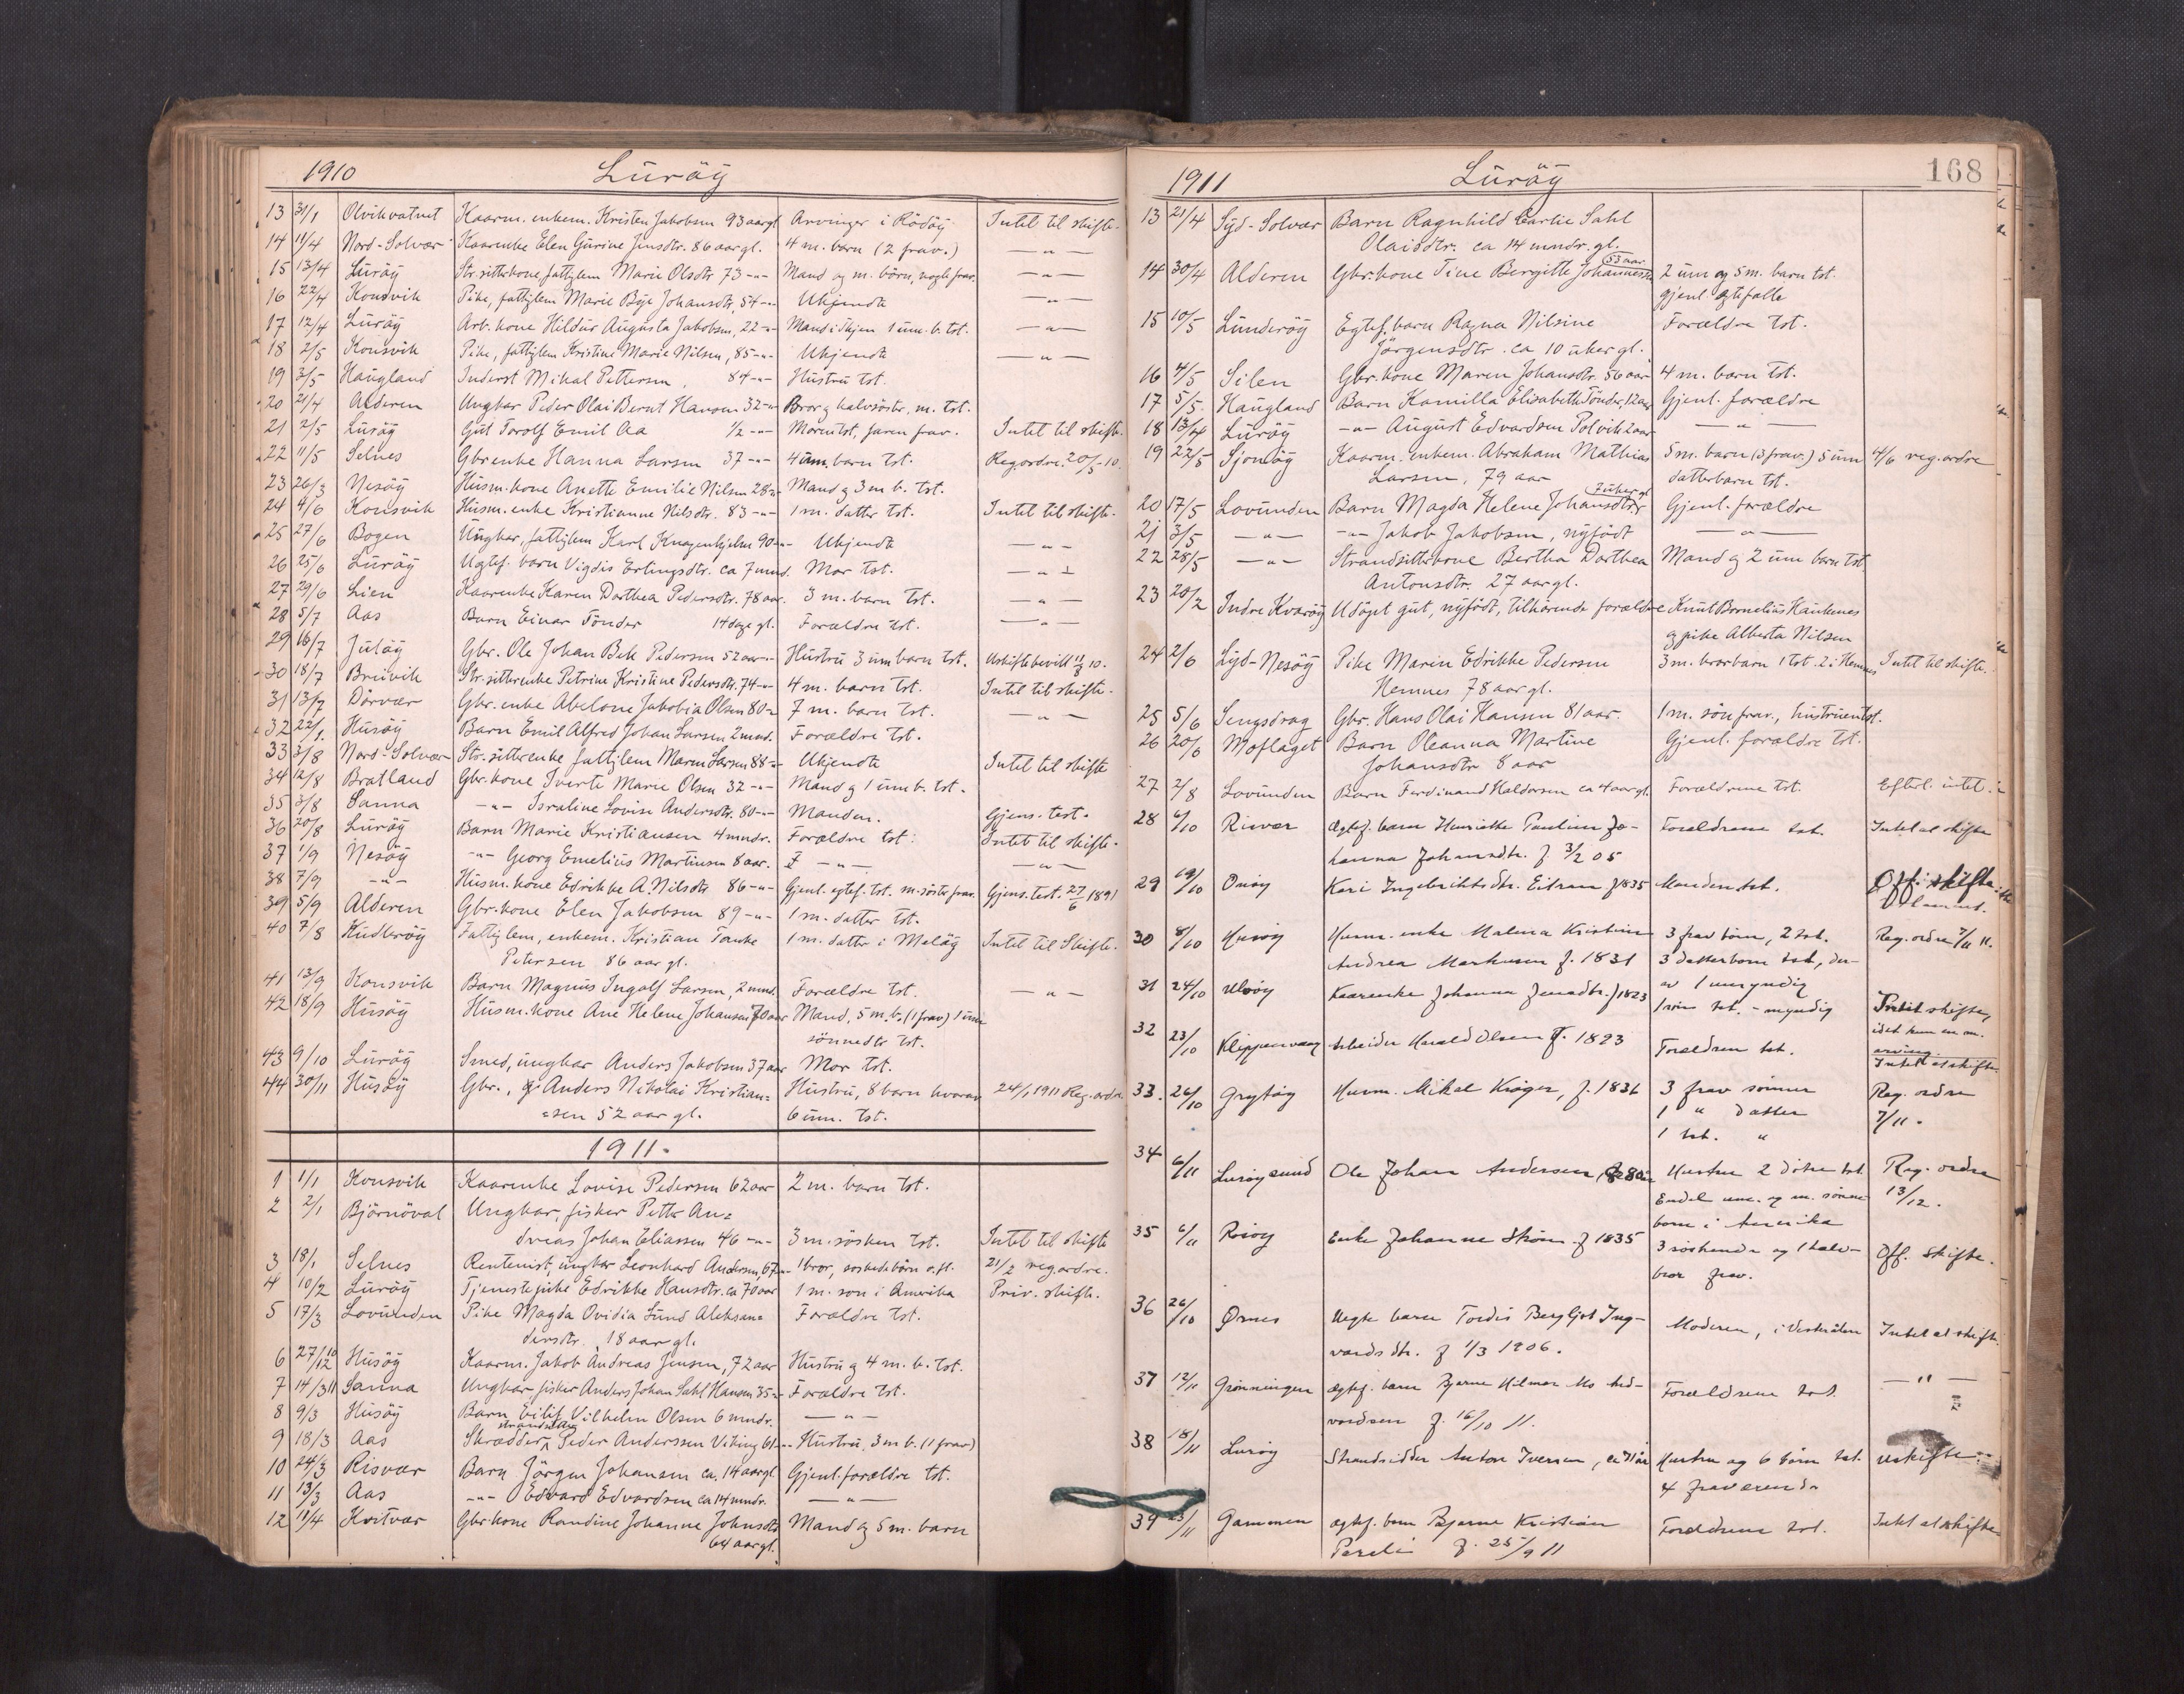 1910 Luröy
13 31/1 Olvikvatnet Kaarm. enkem. Kristen Jakobsen 93 aargl Arvinger i Rödöy Intet til skifte.
14 11/4 Nord-Solvær Kaarenke Elen Gurine Jensdtr. 86 aar gl. 4 m. barn (2 frav.) -"-
15 13/4 Luröy Str.sitterkone, fattiglem Marie Olsdtr 73 -"- Mand og m. börn, nogle frav. -"-
16 22/4 Konsvik Pike, fattiglem Marie Johansdtr, 54 -"- Ukjendt -"-
17 12/4 Luröy Arb. kone Hildur Augusta Jakobsen, 22 -"- Mand 1 um. b. tst. -"-
18 2/5 Konsvik Pike, fattiglem Kristine Marie Nilsen, 85 -"- Ukjendt -"-
19 3/5 Haugland Inderst Mikal Pettersen, 84 -"- Hustru tst.
20 21/4 Alderen Ungkar Peder Olai Bernt Hansen 32 -"- Bror og halvsöster, m. tst.
21 2/5 Luröy Gut Torolf Emil Aa 1/2 -"- Moren tst, faren frav. Intet til skifte.
22 11/5 Selnes Gbr enke Hanna Larsen 37 -"- 4 um. barn tst. Regordre 20/5 10.
23 26/3 Nesöy Husm. kone Anette Emilie Nilsen 28 -"- Mand og 3 m b. tst.
24 4/6 Konsvik Husm. enke Kristianne Nilsdtr. 83 -"- 1 m. datter tst. Intet til skifte.
25 27/6 Bogen Ungkar, fattiglem Karl Knagenhjelm 90 -"- Ukjendt -"-
26 25/6 Luröy Uegtef. barn Vigdis Erlingsdtr. ca 7 mnd. Mor tst. -"-
27 29/6 Lien Kaarenke Karen Dorthea Pedersdtr. 78 aar. 3 m. barn tst. -"-
28 5/7 Aas Barn Einar Tönder 14 dage gl. Forældre tst. -"-
29 16/7 Juläy Gbr. Ole Johan Bek Pedersen 52 aar -"- Hustru 3 um barn tst. Uskiftebevill 11/8 10.
30 18/7 Bruvik Str.sitterenke Petrine Kristine Pedersdtr. 74 -"- 4 m. barn tst. Intet til skifte.
31 13/7 Dörvær Gbr. enke Abelone Jakobia Olsen 80 -"- 7 m. barn tst. -"-
32 22/1. Husöy Barn Emil Alfred Johan Larsen 2 mnd. Forældre tst.
33 3/8 Nord-Solvær Str.sitterenke fattiglem Maren Larsen 88 -"- Ukjendte Intet til skifte
34 12/8 Bratland Gbr. kone Iverte Marie Olsen 32 -"- Mand og 1 um b. tst.
35 3/8 Sanna -"- Israline Lovise Andersdtr. 80 -"- Manden. Gjens. test.
36 20/8 Luröy Barn Marie Kristiansen 4 mndr. Forældre tst. Intet til skifte.
37 1/9 Nesöy -"- Georg Emelius Martinsen 8 aar. -"- -"-
38 7/9 -"- Husm. kone Edrikke A. Nilsdtr 86 -"- Gjenl. egtef. tst. m. söster frav. Gjens. test. 27/6 1891
39 5/9 Alderen Gbr. kone Elen Jakobsen 89 -"- 1 m. datter tst.
40 7/8 Fattiglem, enkem. Kristian Tanke 1 m. datter i Meløy Intet til Skifte.
Petersen 86 aar gl.
41 13/9 Konsvik Barn Magnus Ingolf Larsen, 2 mnd. Forældre tst. -"-
42 18/9 Husöy Husm. kone Ane Helene Johansen 70 aar Mand, 5 m. b. (1 frav) 1 um
sönnedtr tst.
43 9/10 Luröy Smed, ungkar Anders Jakobsen 37 aar Mor tst.
44 30/11 Husöy Gbr., Anders Nikolai Kristian= Hustru, 8 barn hvorav 24/1 1911 Reg. ordre
=sen 52 aar gl. 6 um. tst.
1911.
1 1/1 Konsvik Kaarenke Lovise Pedersen 62 aar 2 m. barn tst.
2 2/1 Björnöval Ungkar, fisker Petter An=
dreas Johan Eliassen 46 -"- 3 m. sösken tst. Intet til skifte
3 18/1 Selnes Rentenist, ungkar Leonhard Andersen, 67 -"- 1 bror, 21/2 regordre.
4 10/2 Luröy Tjenestepike Edrikke Hansdtr. ca 70 aar 1 m. son i Amerika Priv. skifte.
5 17/3 Lovunden Pike Magda Ovidia Lund Aleksan= Forældre tst.
dersdtr. 18 aar gl.
6 27/10 12 Husöy Kaarm. Jakob Andreas Jensen, 72 aar Hustru og 4 m. b. tst.
7 14/3 11 Sanna Ungkar, fisker Anders Johan Sahl Hansen 35 -"- Forældre tst.
8 9/3 Husöy Barn Eilif Vilhelm Olsen 6 mndr. -"-
strandsitter
9 18/3 Aas Skrædder, Peder Anderssen Viking 61 -"- Hustru, 3 m b. (1 frav)
10 24/3 Risvær Barn Jörgen Johansen ca. 14 aar gl. Gjenl. forældre tst.
11 13/3 Aas -"- Edvard Edvardsen ca 14 mndr. -"-
12 11/4 Kvitvær Gbr kone Randine Johanne Johnsdtr Mand og 5 m. barn
64 aar gl.
1911 Luröy 168
13 21/4 Syd-Solvær Barn Ragnhild Carlie Sahl
Olaisdtr. ca 14 mndr. gl.
53 aar
14 30/4 Alderen Gbr. kone Tine Bergitte Johannesdtr 2 um og 5 m. barn tst.
gjenl. egtefælle
15 10/5 Lunderöy Egtef. barn Ragna Nilsine Forældre tst.
Jörgensdtr. ca 10 uker gl.
16 4/5 Silen Gbr. kone Maren Johansdtr. 56 aar 4 m. barn tst.
17 5/5. Haugland Barn Kamilla Elisabeth Tönder, 12 aar Gjenl. forældre
18 13/4 Luröy -"- August Edvardsen Polvik 2 aar -"-
19 22/5 Sjonöy Kaarm. enkem. Abraham Mathias 5 m. barn (3 frav.) 5 um 4/6 reg. ordre
Larsen, 79 aar datterbarn tst.
7 uker gl
20 17/5 Lovunden Barn Magda Helene Johansdtr Gjenl. forældre
21 3/5 -"- -"- Jakob Jakobsen, nyfödt -"-
22 28/5 -"- Strandsitterkone Bertha Dorthea Mand og 2 um barn tst
Antonsdtr. 27 aar gl.
23 20/2 Indre Kvaröy Udöpt gut, nyfödt, tilhörende forældre Knut Bornelius Haukenes
og pike Alberta Nilsen
24 2/6 Syd-Nesöy Pike Maren Edrikke Pedersen 3 m. brorbarn 1 tst. 2 i Hemnes Intet til skifte.
Hemnes 78 aar gl.
25 5/6 Sengsdrag Gbr. Hans Olai Hansen 81 aar. 1 m. sön frav., hustruen tst.
26 20/6 Moflaget Barn Oleanna Martine Gjenl. forældre tst.
Johansdtr 8 aar
27 2/8 Lovunden Barn Ferdinand Haldorsen ca 4 aar gl. Forældrene tst. Efterl. intet
28 6/10 Risvær Ægtef. barn Henriette Pauline Jo- Forældrene tst. Intet at skifte
hanna Johansdtr. f 3/2 05
29 19/10 Onøy Kari Ingebriktsdtr. Eitran f 1835 Manden tst. Off. skifte
30 8/10 Husøy Husm. enke Malena Kristine 3 frav børn, 2 tst. Reg. ordre 7/11 11.
Andrea Markusen f. 1831 3 datterbørn tst, der-
av 1 umyndig
31 24/10 Ulvøy Kaarenke Johanna Jensdtr. f 1823 1 søn tst. - myndig Intet skifte,
idet kun en m.
arving.
32 23/10 Klippenvaag Arbeider Harald Olsen f. 1893 Foreldrene tst. Intet at skifte.
33. 26/10 Grytøy Husm. Mikal Krøger, f. 1831 3 frav sønner Reg. ordre
1 " datter 7/11.
1 tst. "
34 6/11 Lurøysund Ole Johan Andersen, 80 år Hustru 2 døtre tst Reg. ordre
Endel um. og m. sønne 13/12.
born i Amerika
35 6/11 Rosøy Enke Johanne Skón. f 1835 3 søskende og 1 halv- Off. skifte.
bror frav.
36 26/10 Ørnes Uegte barn Tordis Bergljot Ing- Moderen, i Vesterålen Intet at skifte
vardsdtr. f 1/3 1906.
37 12/11 Grønningen Ægtef. barn Bjarne Hilmar Hed- Foreldrene tst. -"-
vardsen f. 16/10 11.
38 18/11 Lurøy Strandsidder Anton Iversen, ca 71 år Hustru og 6 børn tst. uskifte.
4 fraværende
39 23/11 Gammen ægtef. barn Bjarne Kristian Foreldrene tst. Intet at skifte
Pareli f. 25/9 11